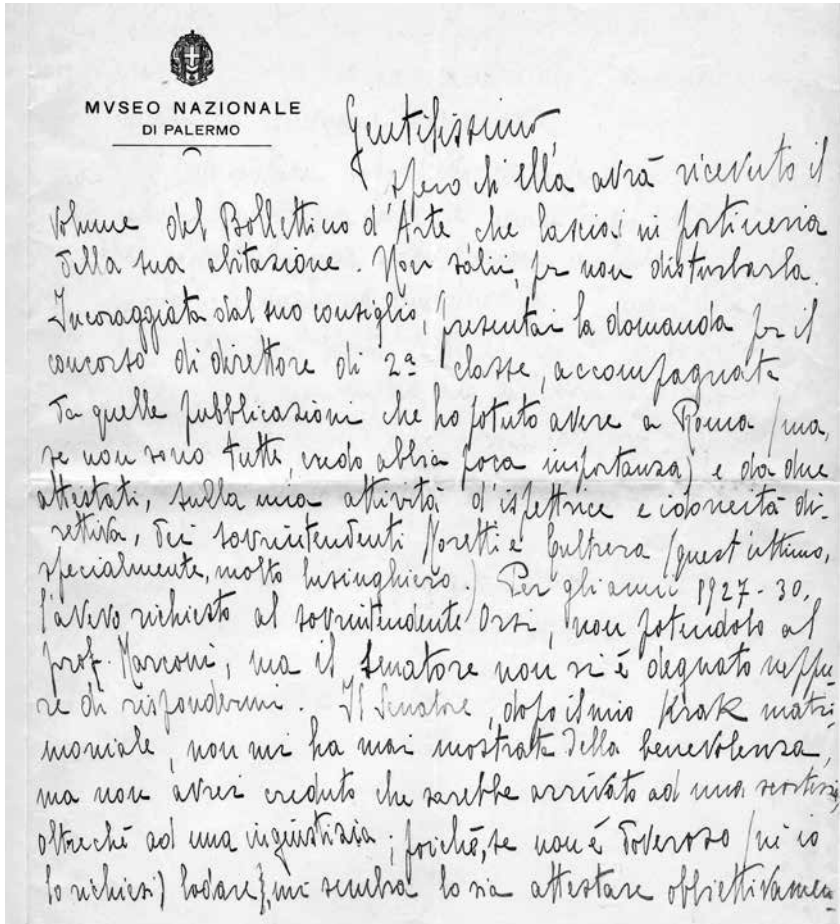 MVSEO NAZIONALE
DI PALERMO
Gentilissimo,
spero ch'ella avrà ricevuto il
volume del Bollettino d'Arte che lasciai in portineria
della sua abitazione. Non salii, per non disturbarla.
Incoraggiata dal suo consiglio, presentai la domanda per il
concorso di direttore di 2ª classe, accompagnata
da quelle pubblicazioni che ho potuto avere a Roma (ma,
se non sono tutte, credo abbia poca importanza) e da due
attestati, sulla mia attività d'ispettrice e idoneità di-
rettiva, dei sovrintendenti Moretti e Cultrera (quest'ultimo,
specialmente, molto lusinghiero.) Per gli anni 1927-30,
l'avevo richiesto al sovrintendente Orsi, non potendolo al
prof. Marconi, ma il Senatore non si è degnato neppu
re di rispondermi. Il Senatore, dopo il mio Krak matri
moniale, non mi ha mai mostrata della benevolenza,
ma non avrei creduto che sarebbe arrivato ad una
oltreché ad una ingiustizia; poiché, se non è doveroso (né io
lo richiesi) lodare, mi sembra lo sia attestare obbiettivamen-